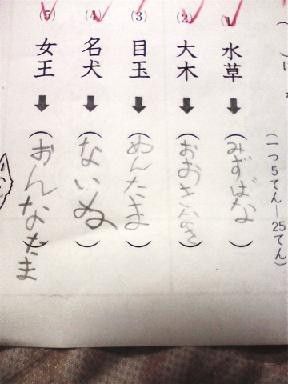 (一つ5てん―25てん)
水草 ➡ (みずばな)
(2) 大木 ➡ ( )
(3) 目玉 ➡ (めんたま)
(4) 名犬 ➡ (ないぬ)
(5) 女王 ➡ (おんなたま)